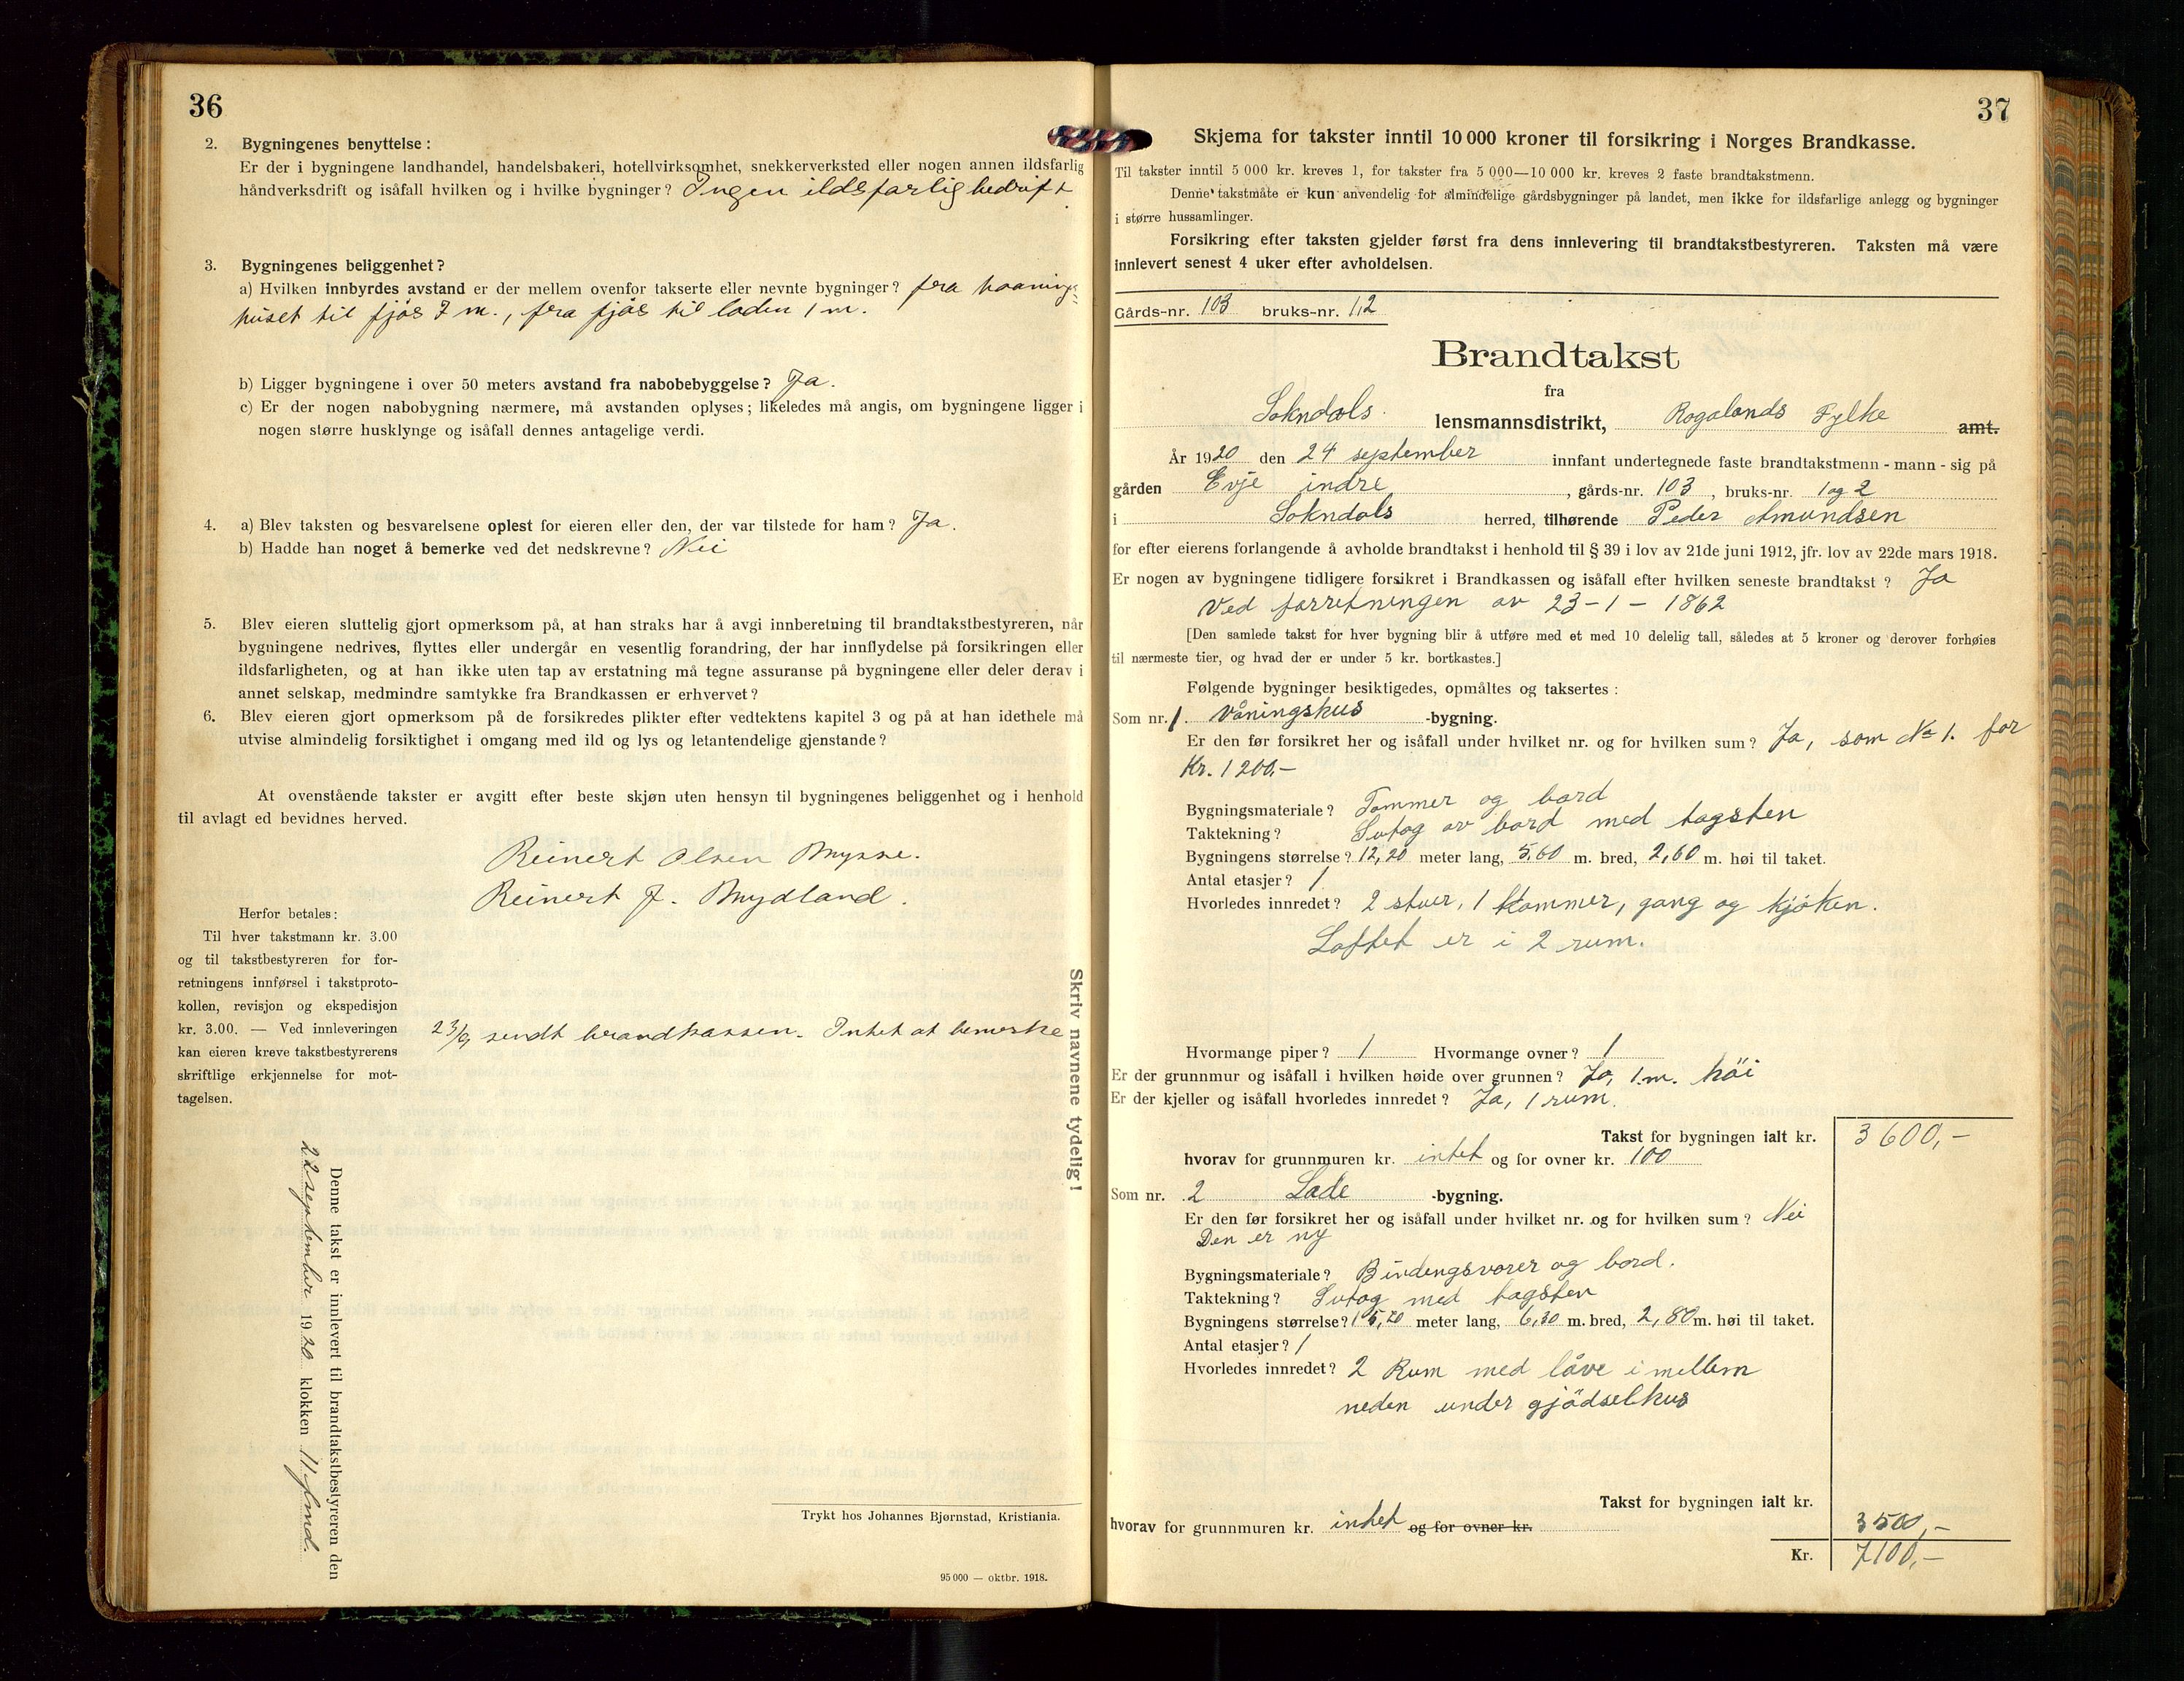 36
2. Bygningenes benyttelse:
Er der i bygningene landhandel, handelsbakeri, hotellvirksomhet, snekkerverksted eller nogen annen ildsfarlig
håndverksdrift og isåfall hvilken og i hvilke bygninger? Ingen ildsfarlig bedrift.
3. Bygningenes beliggenhet?
a) Hvilken innbyrdes avstand er der mellem ovenfor takserte eller nevnte bygninger? fra vaanings=
huset til fjøs 7 m., fra fjøs til laden 1 m.
b) Ligger bygningene i over 50 meters avstand fra nabobebyggelse? Ja.
c) Er der nogen nabobygning nærmere, må avstanden oplyses; likeledes må angis, om bygningene ligger i
nogen større husklynge og isåfall dennes antagelige verdi.
4. a) Blev taksten og besvarelsene oplest for eieren eller den, der var tilstede for ham? Ja.
b) Hadde han noget å bemerke ved det nedskrevne? Nei
5. Blev eieren sluttelig gjort opmerksom på, at han straks har å avgi innberetning til brandtakstbestyreren, når
bygningene nedrives, flyttes eller undergår en vesentlig forandring, der har innflydelse på forsikringen eller
ildsfarligheten, og at han ikke uten tap av erstatning må tegne assuranse på bygningene eller deler derav i
annet selskap, medmindre samtykke fra Brandkassen er erhvervet?
6. Blev eieren gjort opmerksom på de forsikredes plikter efter vedtektens kapitel 3 og på at han idethele må
utvise almindelig forsiktighet i omgang med ild og lys og letantendelige gjenstande?
At ovenstående takster er avgitt efter beste skjøn uten hensyn til bygningenes beliggenhet og i henhold
til avlagt ed bevidnes herved.
Reinert Olsen Mysse.
Reinert J. Mydland.
Herfor betales:
Til hver takstmann kr. 3.00
og til takstbestyreren for for-
retningens innførsel i takstproto-
kollen, revisjon og ekspedisjon
kr. 3.00. — Ved innleveringen
kan eieren kreve takstbestyrerens
skriftlige erkjennelse for mot-
tagelsen.
23/9 sendt brandkassen. Intet at bemerke
Skriv navnene tydelig!
Denne takst er innlevert til brandtakstbestyreren den
22 september 1920 klokken 11 fmd.
Trykt hos Johannes Bjørnstad, Kristiania.
95 000 — oktbr. 1918.
37
Skjema for takster inntil 10 000 kroner til forsikring i Norges Brandkasse.
Til takster inntil 5 000 kr. kreves 1, for takster fra 5 000—10 000 kr. kreves 2 faste brandtakstmenn.
Denne takstmåte er kun anvendelig for almindelige gårdsbygninger på landet, men ikke for ildsfarlige anlegg og bygninger
i større hussamlinger.
Forsikring efter taksten gjelder først fra dens innlevering til brandtakstbestyreren. Taksten må være
innlevert senest 4 uker efter avholdelsen.
Gårds-nr. 103 bruks-nr. 1,2
Brandtakst
fra
Sokndals lensmannsdistrikt, Rogalands Fylke amt.
År 1920 den 24 september innfant undertegnede faste brandtakstmenn - mann - sig på
gården Evje indre, gårds-nr. 103, bruks-nr. 1 og 2
i Sokndals herred, tilhørende Peder Amundsen
for efter eierens forlangende å avholde brandtakst i henhold til § 39 i lov av 21de juni 1912, jfr. lov av 22de mars 1918.
Er nogen av bygningene tidligere forsikret i Brandkassen og isåfall efter hvilken seneste brandtakst? Ja
Ved forretningen av 23-1-1862
[Den samlede takst for hver bygning blir å utføre med et med 10 delelig tall, således at 5 kroner og derover forhøies
til nærmeste tier, og hvad der er under 5 kr. bortkastes.]
Følgende bygninger besiktigedes, opmåltes og taksertes:
Som nr. 1. Våningshus -bygning.
Er den før forsikret her og isåfall under hvilket nr. og for hvilken sum? Ja, som No 1. for
Kr. 1200,-
Bygningsmateriale? Tømmer og bord
Taktekning? Sutag av bord med tagsten
Bygningens størrelse? 12,20 meter lang, 5,60 m. bred, 2,60 m. høi til taket.
Antal etasjer? 1
Hvorledes innredet? 2 stuer, 1 Kammer, gang og kjøken.
Loftet er i 2 rum.
Hvormange piper? 1 Hvormange ovner? 1
Er der grunnmur og isåfall i hvilken høide over grunnen? Ja, 1.m. höi
Er der kjeller og isåfall hvorledes innredet? Ja, 1 rum.
Takst for bygningen ialt kr. 3600,-
hvorav for grunnmuren kr. intet og for ovner kr. 100
Som nr. 2 Lade -bygning.
Er den før forsikret her og isåfall under hvilket nr. og for hvilken sum? Nei
Den er ny
Bygningsmateriale? Bindingsvorer og bord.
Taktekning? Sutag med tagsten
Bygningens størrelse? 15,20 meter lang, 6,30 m. bred, 2,80 m. høi til taket.
Antal etasjer? 1
Hvorledes innredet? 2 Rum med låve i mellem
neden under gjödselhus
Takst for bygningen ialt kr.
hvorav for grunnmuren kr. intet og for ovner kr. 3500,-
Kr. 7100,-